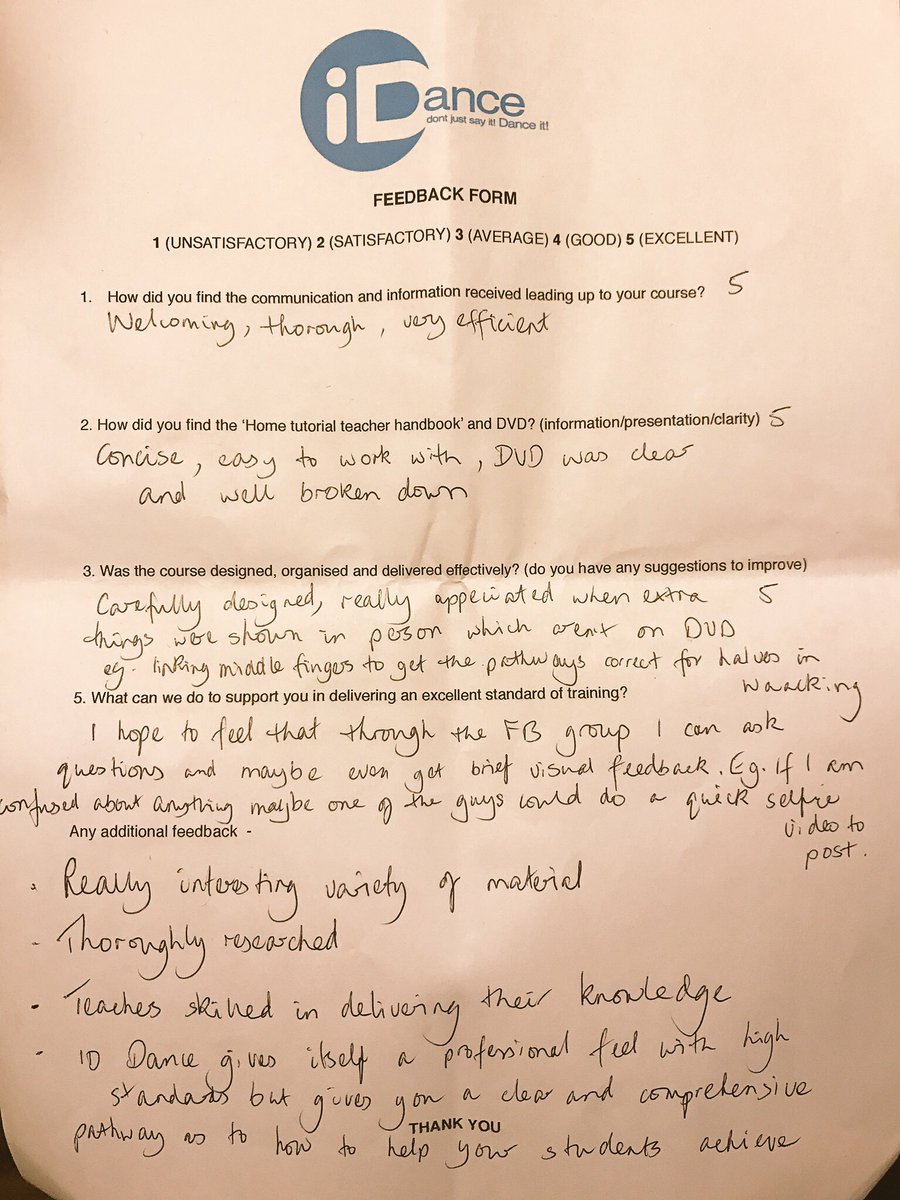 iDance
dont just say it! Dance it!
FEEDBACK FORM
1 (UNSATISFACTORY) 2 (SATISFACTORY) 3 (AVERAGE) 4 (GOOD) 5 (EXCELLENT)
1. How did you find the communication and information received leading up to your course? 5
Welcoming, thorough, very efficient
2. How did you find the ‘Home tutorial teacher handbook’ and DVD? (information/presentation/clarity) 5
Concise, easy to work with, DVD was clear
and well broken down
3. Was the course designed, organised and delivered effectively? (do you have any suggestions to improve)
Carefully designed, really appeciated when extra 5
things were shown in person which aren't on DVD
eg. linking middle fingers to get the pathways correct for halves in
waacking
5. What can we do to support you in delivering an excellent standard of training?
I hope to feel that through the FB group I can ask
questions and maybe even get brief visual feedback. Eg. If I am
confused about anything maybe one of the guys could do a quick selfie
video to
post.
Any additional feedback -
- Really interesting variety of material
- Thoroughly researched
- Teaches skilled in delivering their knowledge
- ID Dance gives itself a professional feel with high
standards but gives you a clear and comprehensive
THANK YOU
pathway as to how to help your students achieve